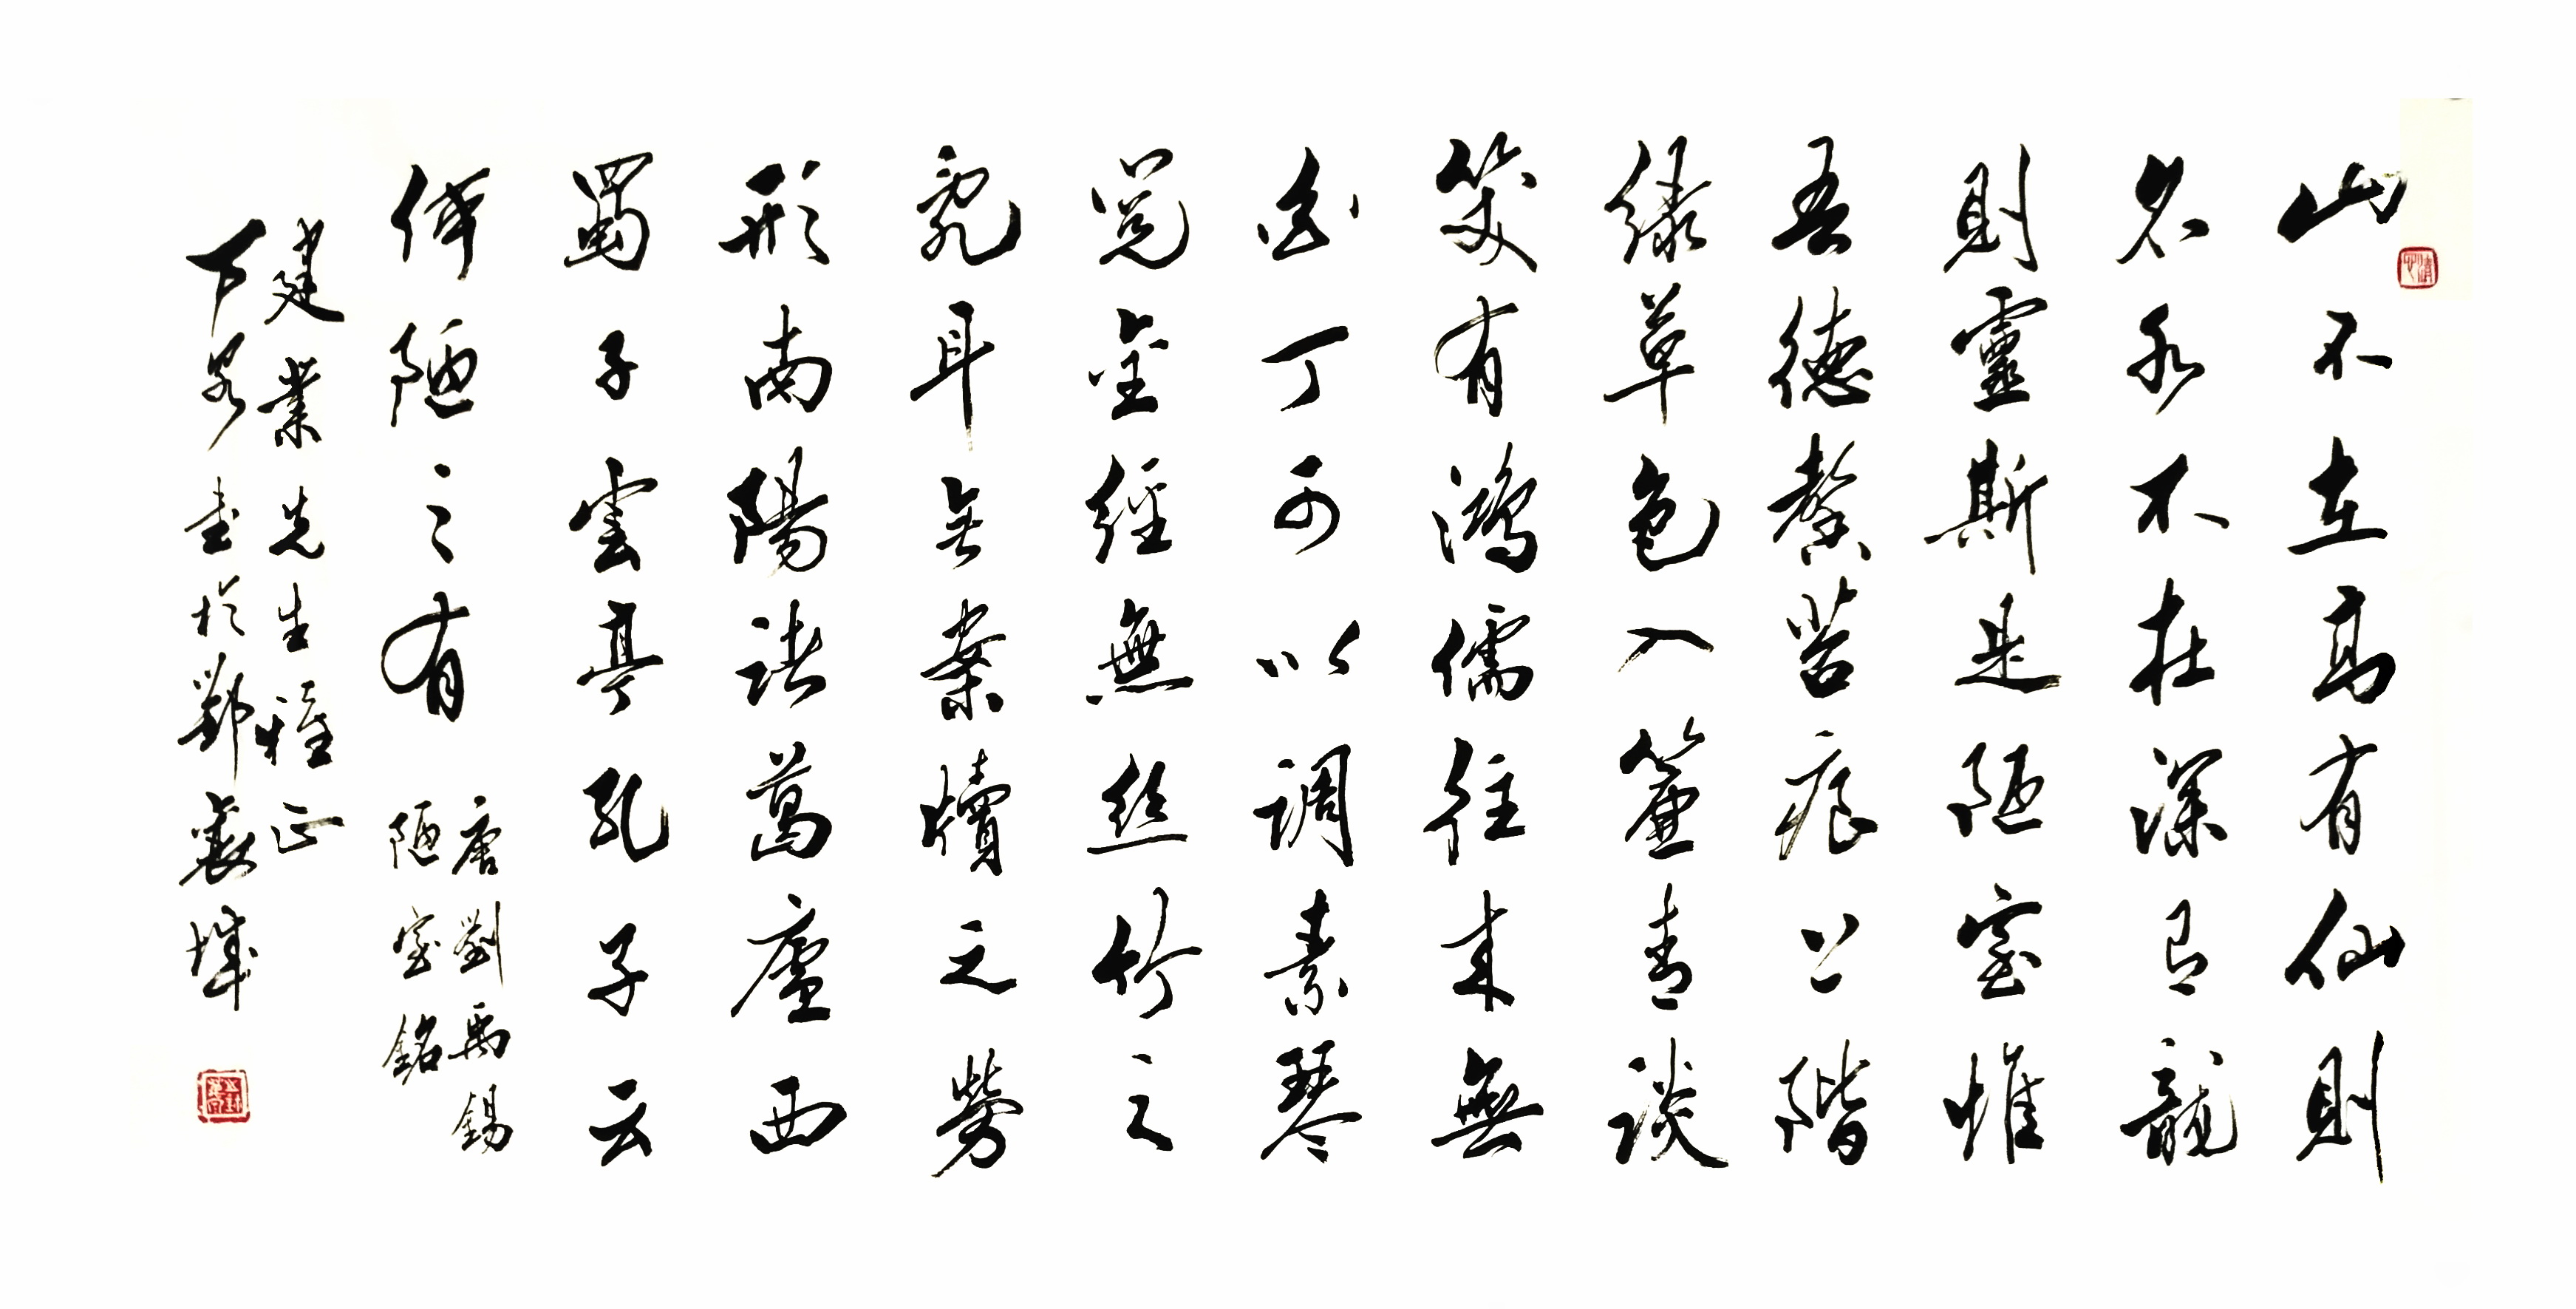 山不在高有仙則
名水不在深有龍
則靈斯是陋室惟
吾德馨苔痕上階
綠草色入簾青談
笑有鴻儒往來無
白丁可以調素琴
閱金經無絲竹之
亂耳無案牘之勞
形南陽諸葛廬西
蜀子雲亭孔子云
何陋之有
唐劉禹錫
陋室銘
建業先生雅正
書於鄭